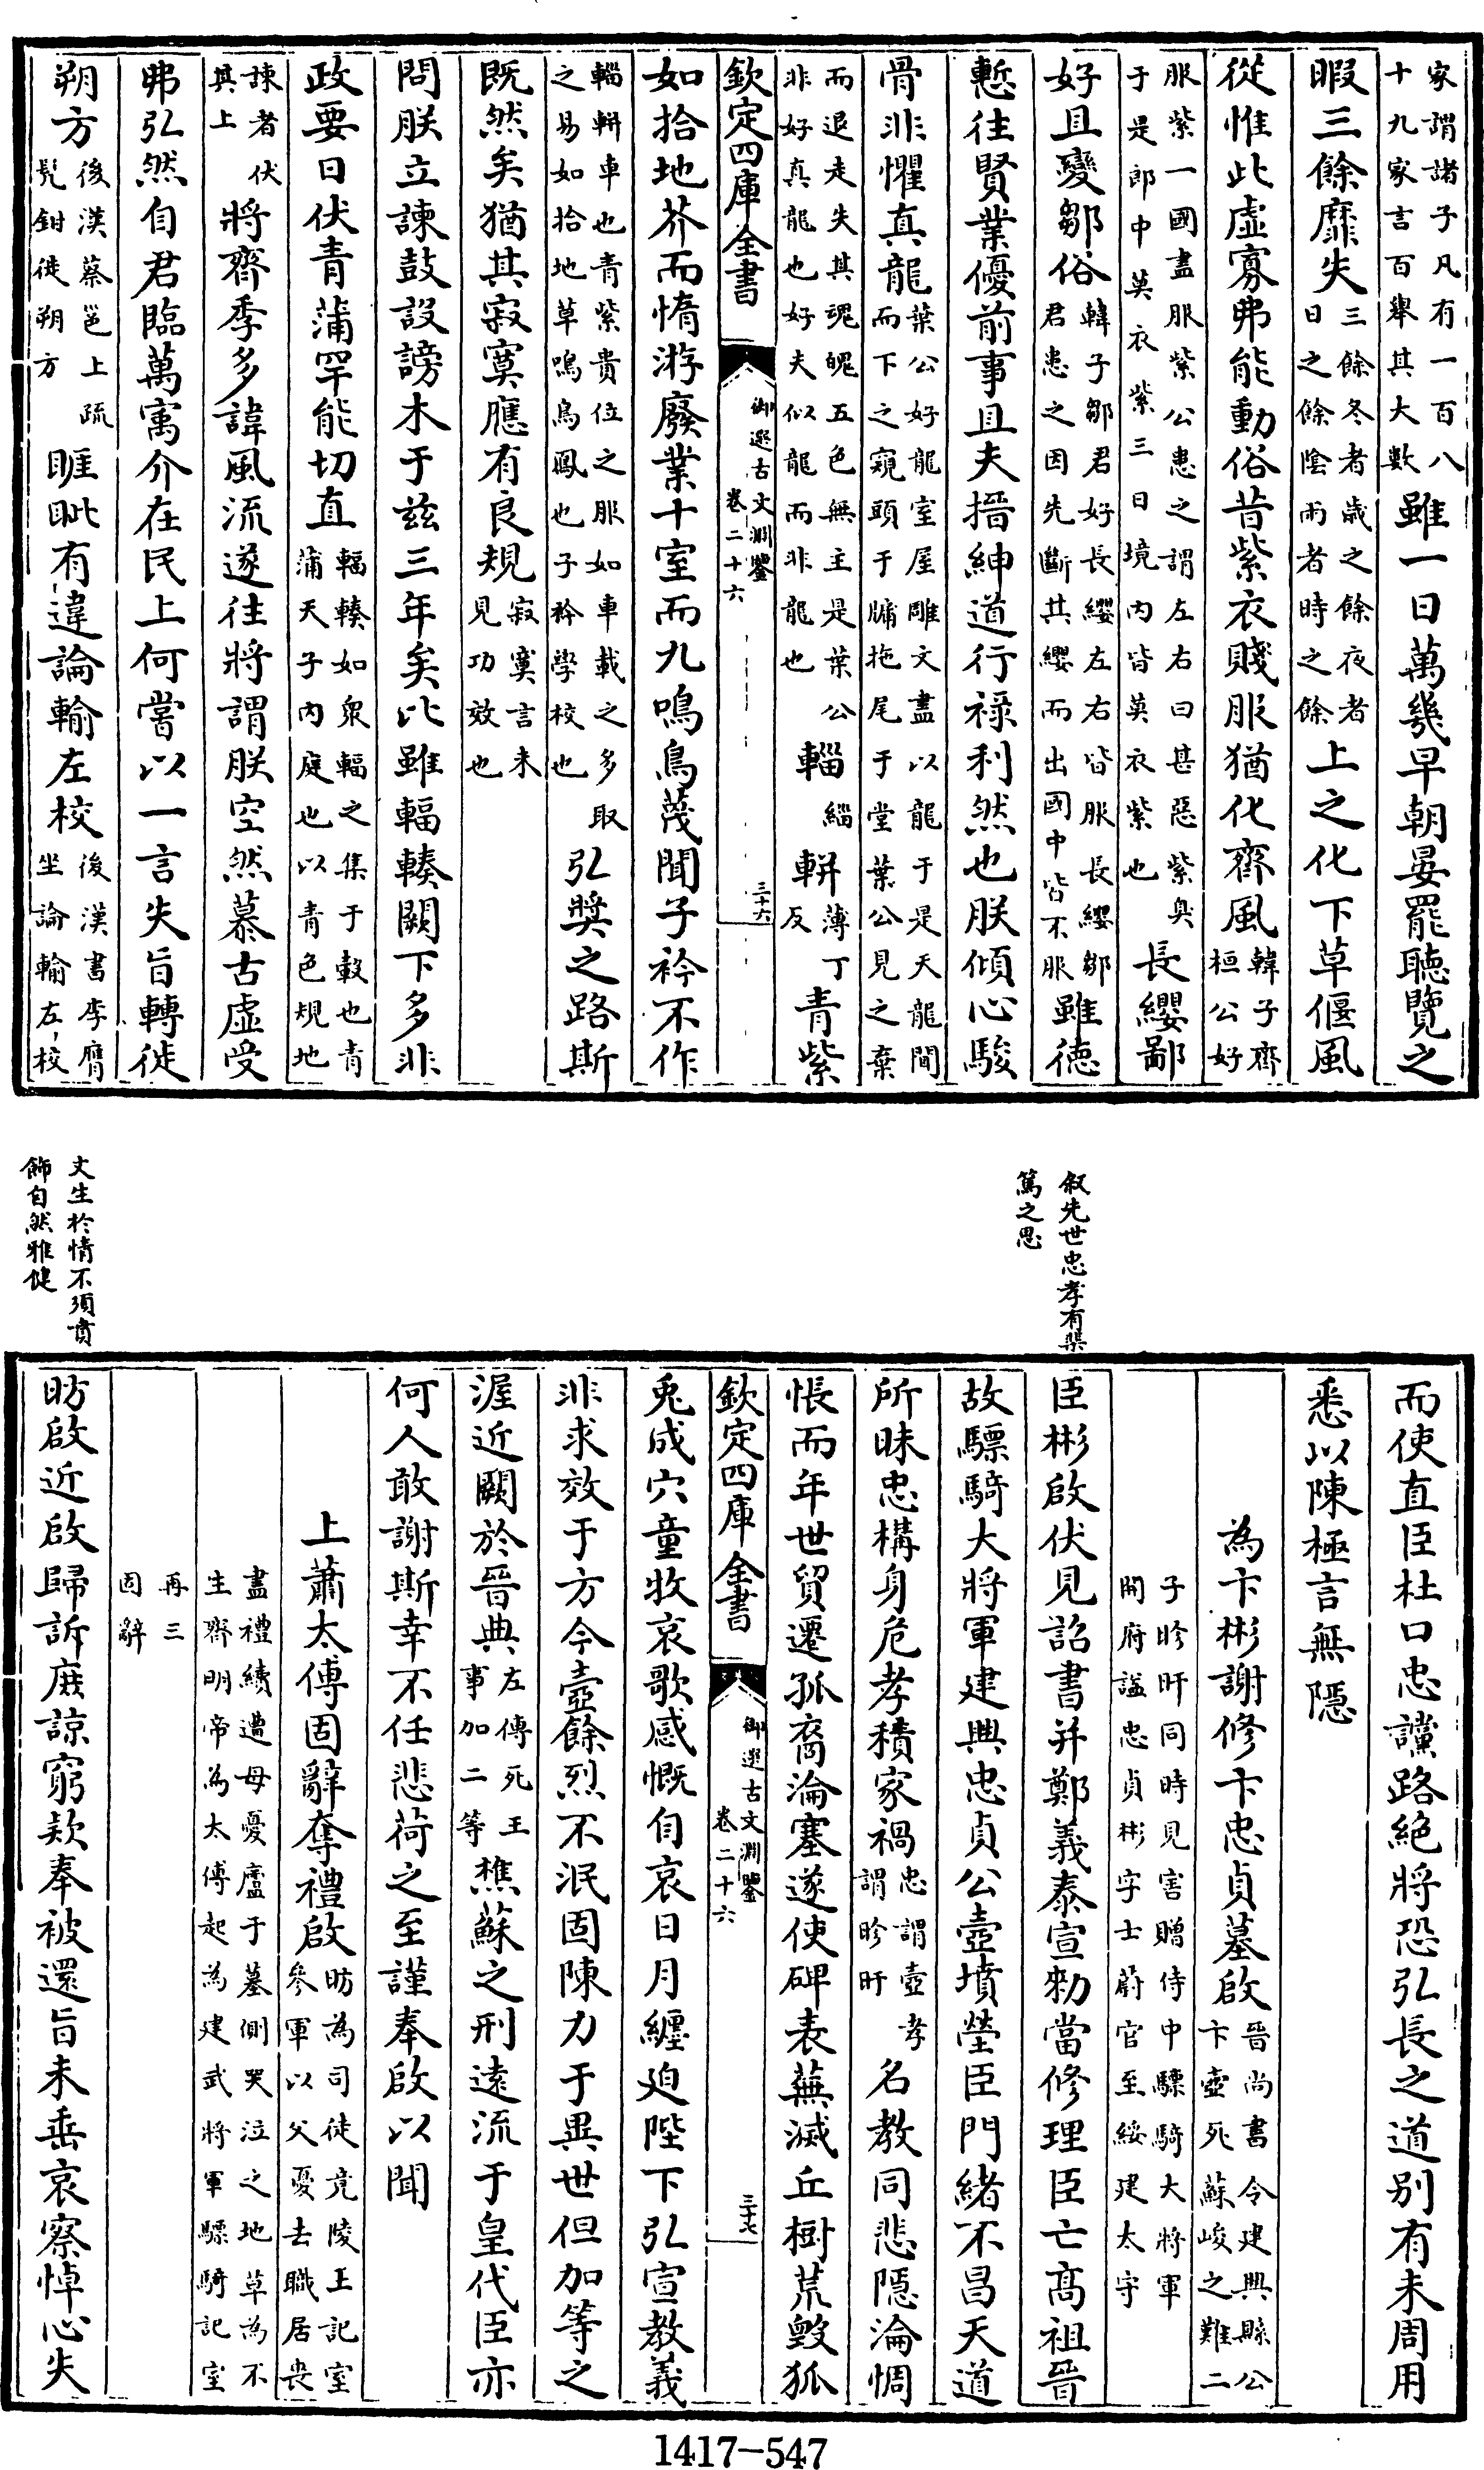 家謂諸子凡有一百八
十九家言百舉其大數
雖一日萬幾早朝晏罷聽覽之
暇三餘靡失
三餘冬者歲之餘夜者
日之餘陰雨者時之餘
上之化下草偃風
從惟此虛寡弗能動俗昔紫衣賤服猶化齊風
韓子齊
桓公好
服紫一國盡服紫公患之謂左右曰甚惡紫臭
于是郎中莫衣紫三日境內皆莫衣紫也
長纓鄙
好且變鄒俗
韓子鄒君好長纓左右皆服長纓鄒
君患之因先斷其纓而出國中皆不服
雖德
慙往賢業優前事且夫搢紳道行祿利然也朕傾心駿
骨非懼真龍
葉公好龍室屋雕文盡以龍于是天龍聞
而下之窺頭于牖拖尾于堂葉公見之棄
而退走失其魂魄五色無主是葉公
非好真龍也好夫似龍而非龍也
輜
緇
軿
薄丁
反
青紫
欽定四庫全書
御選古文淵鑒
卷二十六
三十六
如拾地芥而惰游廢業十室而九鳴鳥蔑聞子衿不作
輜軿車也青紫貴位之服如車載之多取
之易如拾地草鳴鳥鳳也子衿學校也
弘獎之路斯
既然矣猶其寂寞應有良規
寂寞言未
見功效也
問朕立諫鼓設謗木于茲三年矣比雖輻輳闕下多非
政要日伏青蒲罕能切直
輻輳如衆輻之集于轂也青
蒲天子內庭也以青色規地
諫者伏
其上
將齊季多諱風流遂往將謂朕空然慕古虛受
弗弘然自君臨萬寓介在民上何嘗以一言失旨轉徙
朔方
後漢蔡邕上疏
髡鉗徙朔方
睚眦有違論輸左校
後漢書李膺
坐論輸左校
而使直臣杜口忠讜路絕將恐弘長之道別有未周用
悉以陳極言無隱
為卞彬謝修卞忠貞墓啟
晉尚書令建興縣公
卞壺死蘇峻之難二
子眕盱同時見害贈侍中驃騎大將軍
開府諡忠貞彬字士蔚官至綏建太守
敘先世忠孝有渠
篤之思
臣彬啟伏見詔書并鄭義泰宣勑當修理臣亡高祖晉
故驃騎大將軍建興忠貞公壺墳塋臣門緒不昌天道
所昧忠構身危孝積家禍
忠謂壺孝
謂眕盱
名教同悲隱淪惆
悵而年世貿遷孤裔淪塞遂使碑表蕪滅丘樹荒毀狐
欽定四庫全書
御選古文淵鑒
卷二十六
三十七
兎成穴童牧哀歌感慨自哀日月纏迫陛下弘宣教義
非求效于方今壺餘烈不泯固陳力于異世但加等之
渥近闕於晉典
左傳死王
事加二等
樵蘇之刑遠流于皇代臣亦
何人敢謝斯幸不任悲荷之至謹奉啟以聞
上蕭太傅固辭奪禮啟
昉為司徒竟陵王記室
參軍以父憂去職居喪
盡禮續遭母憂廬于墓側哭泣之地草為不
生齊明帝為太傅起為建武將軍驃騎記室
再三
固辭
文生於情不須賁
飾自然雅健
昉啟近啟歸訴庶諒窮欵奉被還旨未垂哀察悼心失
1417-547